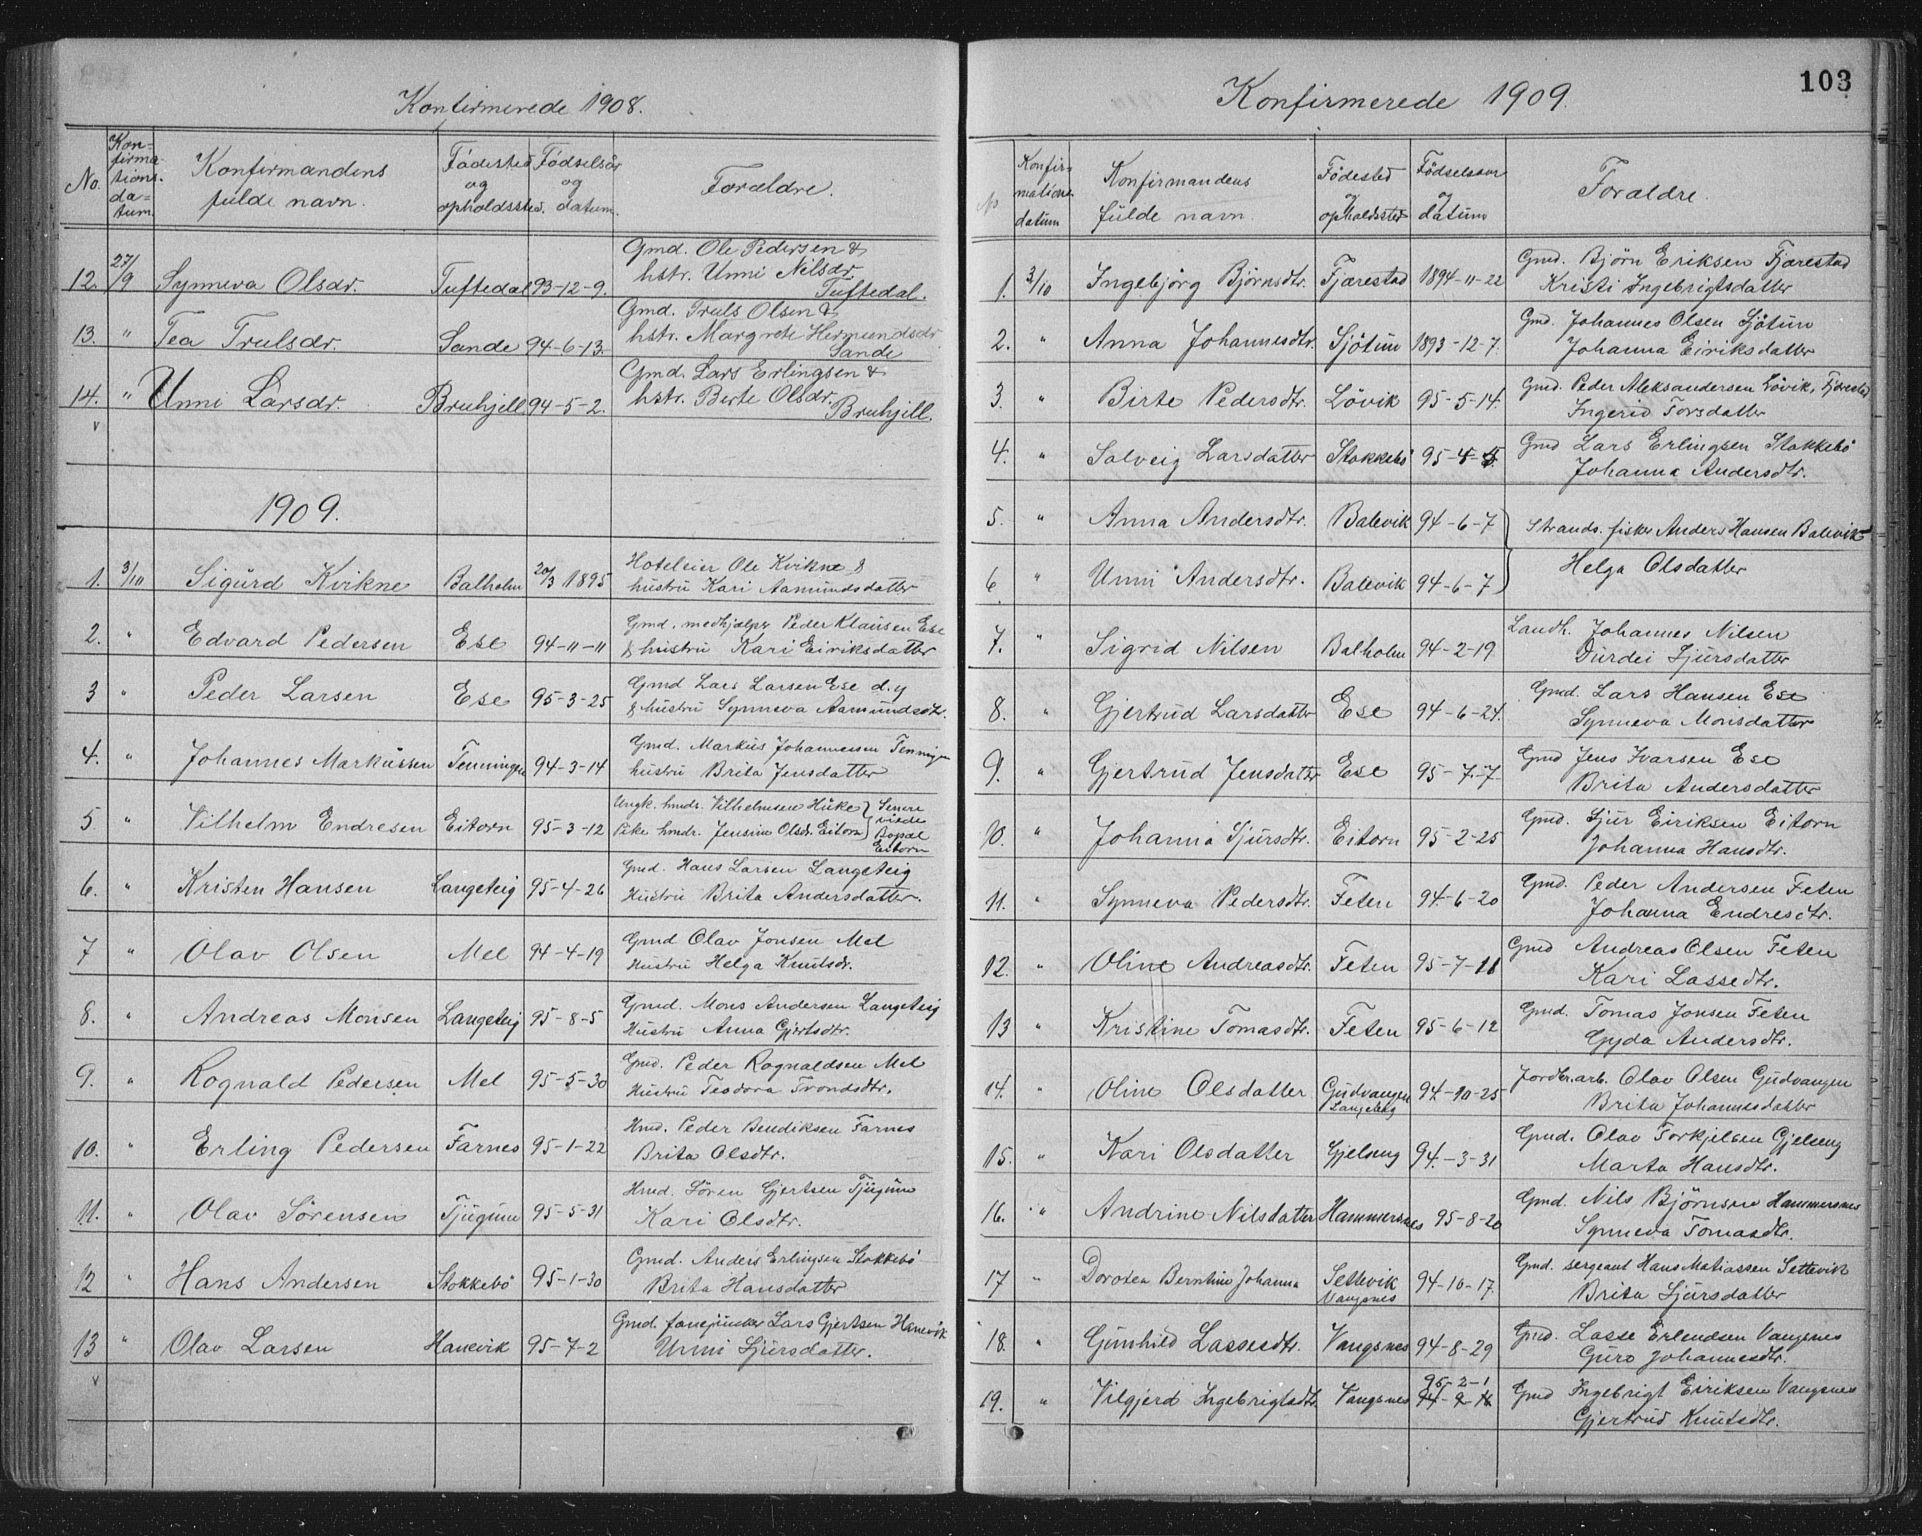 Konfirmerede 1908.
No. Konfirmationsdatum. Konfirmandens fulde navn. Fødested og opholdssted. Fødselsår og datum. Forældre.
12. 27/9 Synneva Olsdr. Tuftedal 93-12-9. Gmd. Ole Pedersen &
hstr. Unni Nilsdr.
Tuftedal.
13. " Tea Trulsdr. Sande 94-6-13. Gmd. Truls Olsen &
hstr. Margrete Hermundsdr.
Sande
14. " Unni Larsdr. Bruhjell 94-5-2. Gmd. Lars Erlingsen &
hstr. Berte Olsdr.
Bruhjell.
1909.
1. 3/10 Sigurd Kvikne Balholm 20/3 1895 Hoteleier Ole Kvikne &
hustru Kari Aamundsdatter
2. " Edvard Pedersen Ese 94-11-11 Gmd. medhjælper Peder Klausen Ese
& hustru Kari Eiriksdatter
3 " Peder Larsen Ese 95-3-25 Gmd Lars Larsen Ese d.y
& hustru Synneva Aamundsdtr.
4. " Johannes Markussen Tenningen 94-3-14 Gmd. Markus Johannesen Tenningen
hustru Brita Jensdatter
5 " Vilhelm Endresen Eitorn 95-3-12 Ungk. hmdr. Vilhelmsen Huke } Senere
Pike hmdr. Jensine Olsdr. Eitorn viede
Bopæl
Eitorn
6. " Kristen Hansen Langeteig 95-4-26 Gmd. Hans Larsen Langeteig
Hustru Brita Andersdatter.
7 " Olav Olsen Mel 94-4-19 Gmd Olav Jonsen Mel
Hustru Helga Knutsdr.
8. " Andreas Monsen Langeteig 95-8-5 Gmd. Mons Andersen Langeteig
Hustru Anna Gjertsdtr.
9. " Rognald Pedersen Mel 95-5-30 Gmd. Peder Rognaldsen Mel
Hustru Teodora Trondsdtr.
10. " Erling Pedersen Farnes 95-1-22 Hmd. Peder Bendiksen Farnes
Brita Olsdtr.
11. " Olav Sørensen Tjugum 95-5-31 Hmd. Sören Gjertsen Tjugum
Kari Olsdtr.
12 " Hans Andersen Stokkebø 95-1-30 Gmd. Anders Erlingsen Stokkebø
Brita Hansdatter
13 " Olav Larsen Hanevik 95-7-2 Gmd. fanejunker Lars Gjertsen Hanevik
Unni Sjursdatter.
103
Konfirmerede 1909.
No Konfirmations datum Konfirmandens fulde navn. Fødested og opholdssted Fødselsaar og datum Foraldre.
1. 3/10 Ingebjørg Bjørnsdtr. Fjærestad 1894-11-22 Gmd. Bjørn Eriksen Fjærestad
Kristi Ingebrigtsdatter
2. " Anna Johannesdtr. Sjøtun 1893-12-7. Gmd. Johannes Olsen Sjøtun
Johanna Eiriksdatter
3. " Birte Pedersdtr. Løvik 95-5-14. Gmd. Peder Aleksandersen Løvik, Fjærestad
Ingerid Torsdatter
4. " Solveig Larsdatter Stokkebø 95-4-5. Gmd Lars Erlingsen Stokkebø
Johanna Andersdtr.
5. " Anna Andersdtr. Balevik 94-6-7 } Strands. fisker Anders Hansen Balevik
6 " Unni Andersdtr. Balevik 94-6-7 Helga Olsdatter
7. " Sigrid Nilsen Balholm 94-2-19 Landh. Johannes Nilsen
Durdei Sjursdatter
8. " Gjertrud Larsdatter Ese 94-6-24. Gmd. Lars Hansen Ese
Synneva Monsdatter
9. " Gjertrud Jensdatter Ese 95-7-7 Gmd Jens Ivarsen Ese
Brita Andersdatter
10. " Johanna Sjursdtr. Eitorn 95-2-25 Gmd. Sjur Eiriksen Eitorn
Johanna Hansdtr.
11. " Synneva Pedersdtr. Feten 94-6-20 Gmd. Peder Andersen Feten
Johanna Endresdtr.
12. " Oline Andreasdtr. Feten 95-7-11 Gmd Andreas Olsen Feten
Kari Lassedtr.
13 " Kristine Tomasdtr. Feten 95-6-12 Gmd. Tomas Jonsen Feten
Gyda Andersdtr.
14. " Oline Olsdatter Gudvangen
Langeteig 94-10-25 Jordbr.arb. Olav Olsen Gudvangen
Brita Johannesdatter
15. " Kari Olsdatter Gjelseng 94-3-31 Gmd. Olav Torkjelsen Gjelseng
Marta Hansdtr.
16. " Andrine Nilsdatter Hammersnes 95-8-20 Gmd. Nils Bjørnsen Hammersnes
Synneva Tomasdtr.
17 " Dorotea Berntine Johanna Settevik
Vangsnes 94-10-17. Gmd. sergeant Hans Matiassen Settevik
Brita Sjursdatter
18. " Gunhild Lassesdtr. Vangsnes 94-8-29 Gmd. Lasse Erlendsen Vangsnes
Guro Johannesdtr.
19. " Vilgjerd Ingebrigtsdtr. Vangsnes 95-2-1 Gmd Ingebrigt Eiriksen Vangsnes
Gjertrud Knutsdtr.